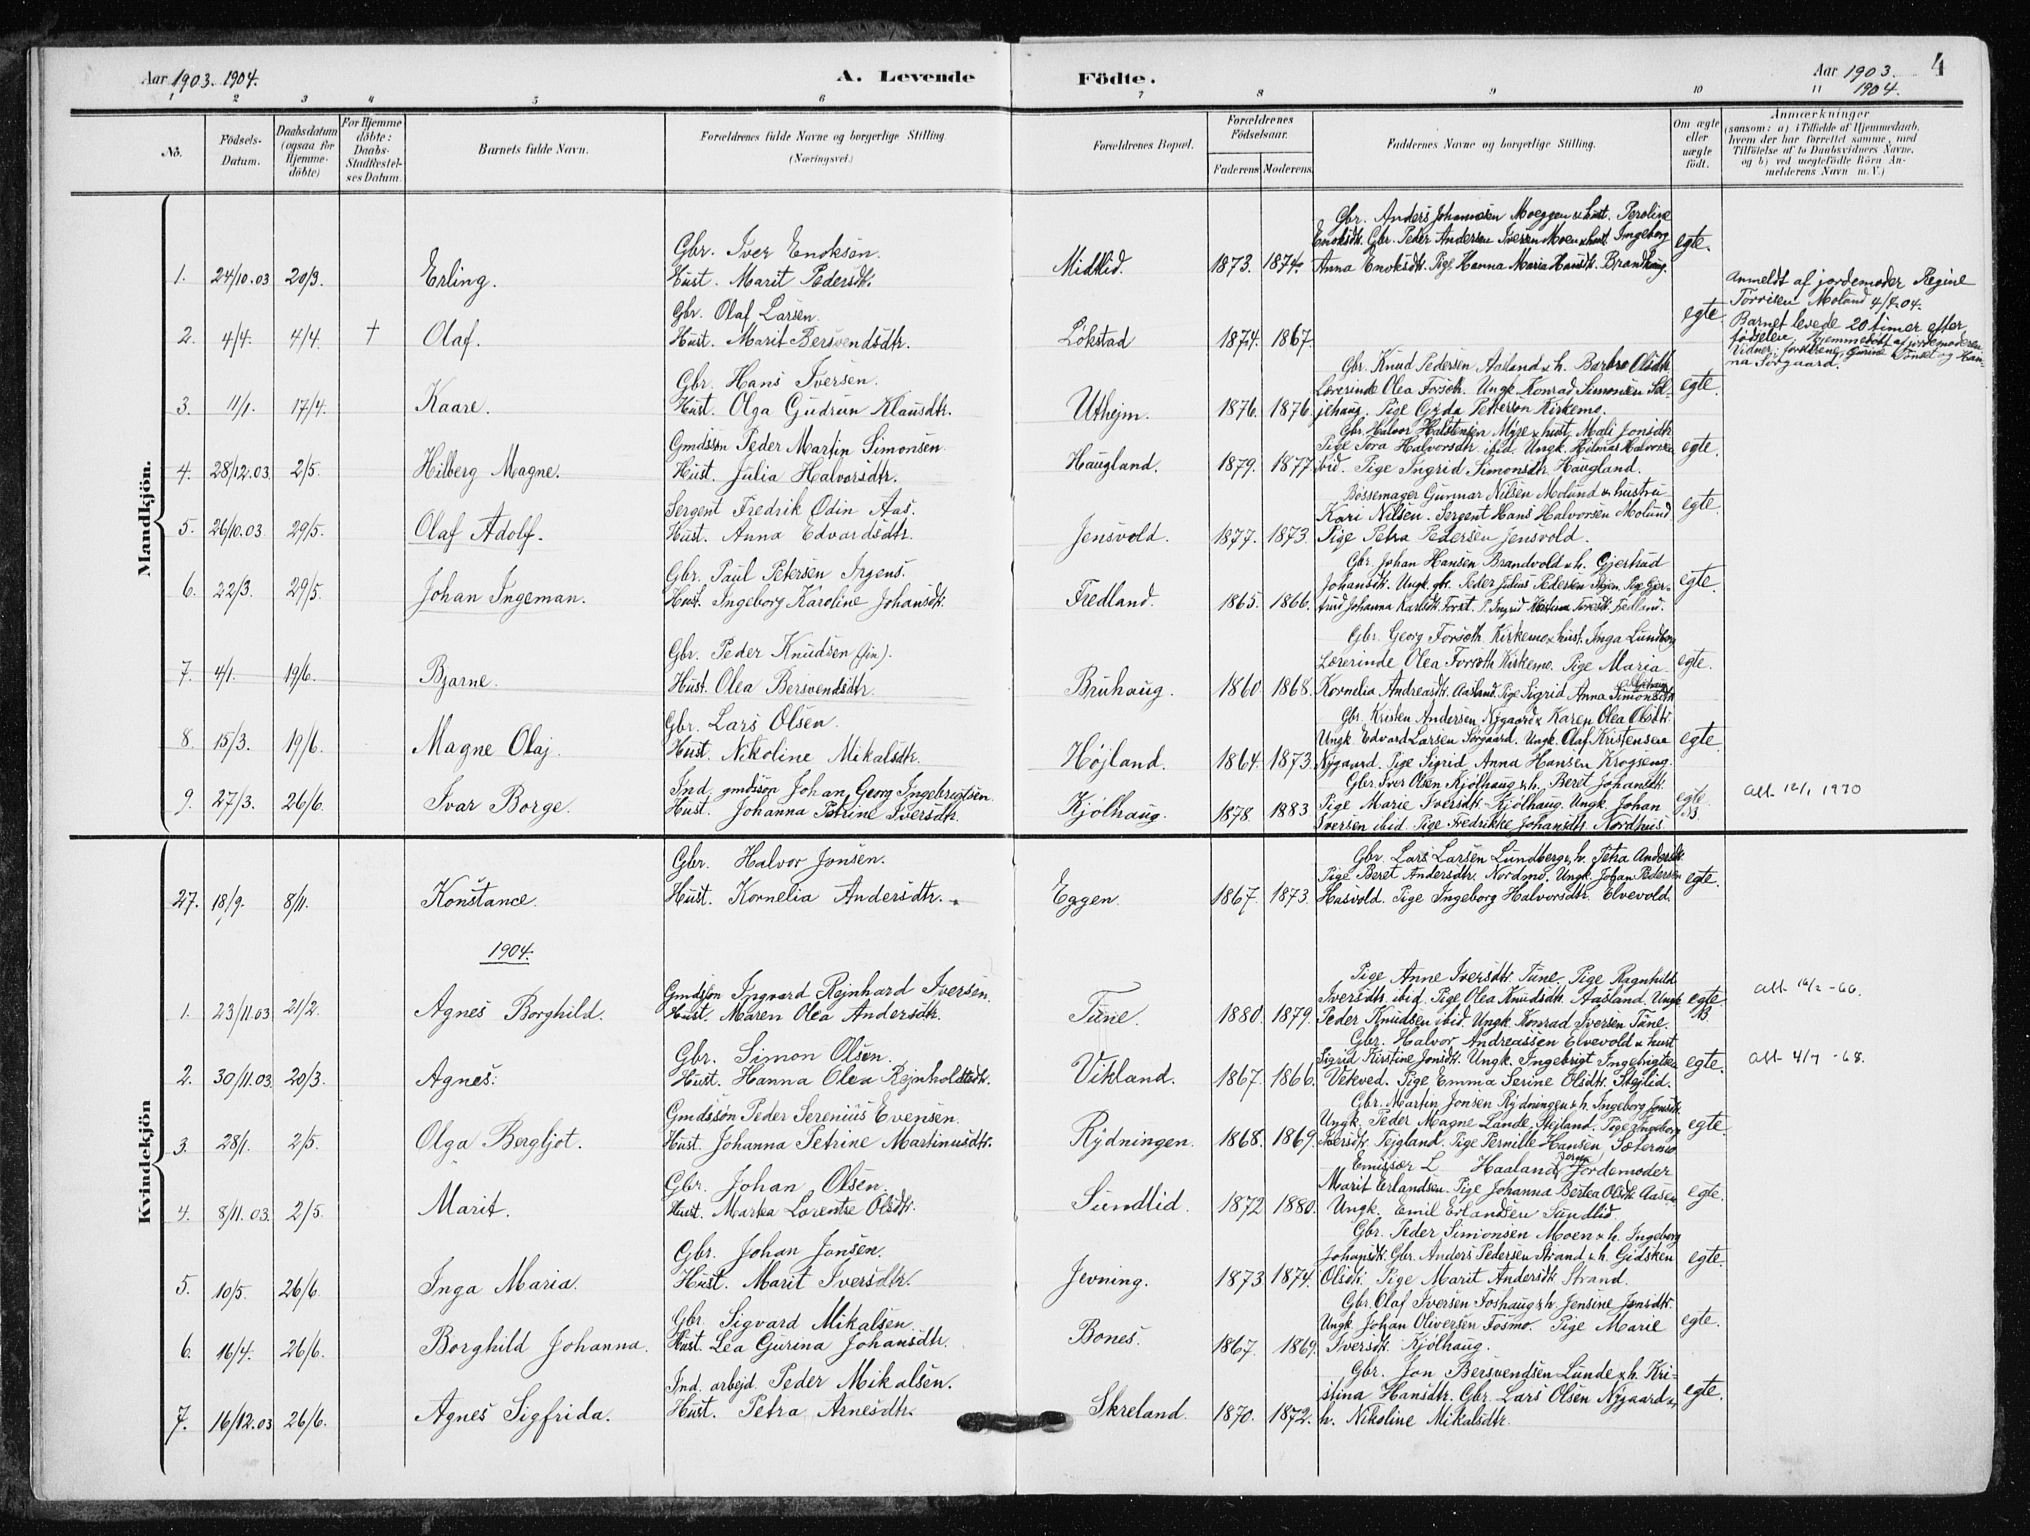 Aar 1903. 1904.
A. Levende
Födte.
Aar 1903.
1904.
4
1 2 3 4 5 6 7 8 9 10 11
No.
Födsels-
Datum.
Daabsdatum
(ogsaa for
Hjemme-
döbte)
For Hjemme
döbte:
Daabs-
Stadfæstel-
ses Datum.
Barnets fulde Navn.
Forældrenes fulde Navne og borgerlige Stilling.
(Næringsvei.)
Forældrenes Bopæl.
Forældrenes
Födselsaar.
Faderens Moderens
Faddernes Navne og borgerlige Stilling.
Om ægte
eller
uægte
födt.
Anmærkninger
(saasom: a) i Tilfælde af Hjemmedaab,
hvem der har forrettet samme, med
Tilföielse af to Daabsvidners Navne,
og b) ved uegtefödte Börn An-
melderens Navn m. V.)
Mandkjön.
Gbr. Iver Enoksen.
1. 24/10.03 20/3. Erling. Hust. Marit Pedersdtr. Midtlid. 1873. 1874.
Gbr. Anders Johansen Moeggen & hust. Peroline
Enoksdtr. Gbr. Peder Andersen Iversen Moen & hust. Ingeborg
Anna Enoksdtr. Pige Hanna Maria Hansdtr. Brandhaug.
egte.
Gbr. Olaf Larsen.
2. 4/4. 4/4. † Olaf. Hust. Marit Bersvendsdtr. Løkstad 1874. 1867.
egte
Anmeldt af jordemoder Regine
Torrisen Moland 4/4.04.
Barnet levede 20 timer efter
fødselen. Hjemmedøbt af jordemoderen
Vidner: forældrene, Gurine Tonset og Han-
na Sørgaard.
Gbr. Hans Iversen.
3. 11/1. 17/4. Kaare. Hust. Olga Gudrun Klausdtr. Uthejm. 1876. 1876.
Gbr. Knud Pedersen Aasland & h. Barbro Olsdtr.
Lærerinde Olea Forseth. Ungk. Konrad Simonsen Sol-
jehaug. Pige Gyda Petterson Kirkemo.
egte.
Gmdssøn Peder Martin Simonsen
4. 28/12.03 2/5. Hilberg Magne. Hust. Julia Halvorsdtr. Haugland. 1879. 1877
Gbr. Halvor Halstensen Myre & hust. Mali Jonsdtr.
Pige Tora Halvorsdtr. ibid. Ungk. Hilmar Halvorsen
ibid. Pige Ingrid Simonsdtr. Haugland.
egte.
Sergent Fredrik Odin Aas.
5. 26/10.03. 29/5. Olaf Adolf. Hust. Anna Edvardsdtr. Jensvold. 1877. 1873.
Bøssemager Gunnar Nilsen Molund & hustru
Kari Nilsen. Sergent Hans Halvorsen Molund
Pige Petra Pedersen Jensvold.
egte.
Gbr. Paul Petersen Irgens.
6. 22/3. 29/5. Johan Ingeman. Hust. Ingeborg Karoline Johansdtr. Fredland. 1865. 1866.
Gbr. Johan Hansen Brandvold & h. Gjertrud
Johansdtr. Ungk. gbr. Peder Julius Pedersen Pige Gjer-
trud Johanna Karlsdtr. Forset. P. Ingrid Toresdtr. Fredland.
egte.
Gbr. Peder Knudsen (fin).
7. 4/1. 19/6. Bjarne. Hust. Olea Bersvendsdtr. Bruhaug. 1860 1868.
Gbr. Georg Forseth Kirkemo & hust. Inga Lundberg
Lærerinde Olea Forseth Kirkemo. Pige Maria
Kornelia Andreasdtr. Aasland. Pige Sigrid Anna Simonsdtr.
egte.
Gbr. Lars Olsen.
8. 15/3. 19/6. Magne Olaj. Hust. Nikoline Mikalsdtr. Højland. 1864. 1873.
Gbr. Kristen Andersen Nygaard & Karen Olea Olsdtr.
Ungk. Edvard Larsen Sørgaard. Ungk. Olaf Kristensen
Nygaard. Pige Sigrid Anna Hansen Krogseng.
egte.
Ind. gmdssøn Johan Georg Ingebrigtsen
9. 27/3. 26/6. Ivar Borge. Hust. Johanna Petrine Iversdtr. Kjølhaug. 1878 1883
Gbr. Iver Olsen Kjølhaug & h. Beret Johansdtr.
Pige Marie Iversdtr. Kjølhaug. Ungk. Johan
Iversen ibid. Pige Fredrikke Johansdtr. Nordhus.
egte.
B.
att. 12/1 1970
Kvindekjön
Gbr. Halvor Jonsen.
27. 18/9. 8/11. Konstance. Hust. Kornelia Andersdtr. Eggen. 1867. 1873.
Gbr. Lars Larsen Lundberg & h. Petra Andersdtr.
Pige Beret Andersdtr. Nordmo. Ungk. Johan Pedersen
Hasvold. Pige Ingeborg Halvorsdtr. Elvevold.
egte.
1904.
Gmdssøn Ingvard Rejnhard Iversen.
1. 23/11.03 21/2. Agnes Borghild. Hust. Maren Olea Andersdtr. Tune. 1880. 1879.
Pige Anne Iversdtr. Tune. Pige Ragnhild
Iversdtr. ibid. Pige Olea Knudsdtr. Aasland. Ungk.
Peder Knudsen ibid. Ungk. Konrad Iversen Tune.
egte
B.
att. 16/2 -66.
Gbr. Simon Olsen.
2. 30/11.03 20/3. Agnes. Hust. Hanna Olea Rejnholdsdtr. Vikland. 1867. 1866.
Gbr. Halvor Andreassen Elvevold & hust
Sigrid Kirstine Jonsdtr. Ungk. Ingebrigt Ingebrigtsen
Vekved. Pige Emma Serine Olsdtr. Stejlid.
egte.
att. 4/7 -68.
Gmdssøn Peder Serenius Evensen.
3. 28/1. 2/5. Olga Bergljot. Hust. Johanna Petrine Martinusdtr. Rydningen. 1868. 1869.
Gbr. Martin Jonsen Rydningen & h. Ingeborg Jonsdtr.
Ungk. Peder Magne Lande, Stejland. Pige Ingeborg
Iversdtr. Tejgland. Pige Pernille Hansen, Sætermo
egte.
Gbr. Johan Olsen.
4. 8/11.03. 2/5. Marit. Hust. Marka Lorentse Olsdtr. Sundlid. 1872 1880.
Emissær L. Haaland Jordemoder
Marit Erlandsen. Pige Johanna Bertea Olsdtr. Aasen
Ungk. Emil Erlandsen Sundlid
egte.
Gbr. Johan Jonsen.
5. 10/5. 26/6. Inga Maria. Hust. Marit Iversdtr. Jevning. 1873 1874.
Gbr. Peder Simonsen Moen & h. Ingeborg
Johansdtr. Gbr. Anders Pedersen Strand & h. Gidsken
Olsdtr. Pige Marit Andersdtr. Strand.
egte.
Gbr. Sigvard Mikalsen.
6. 16/4. 26/6. Borghild Johanna. Hust. Lea Gurina Johansdtr. Bones. 1867. 1869.
Gbr. Olaf Iversen Foshaug & h. Jensine Jonsdtr.
Ungk. Johan Oliversen Fosmo. Pige Marie
Iversdtr. Kjølhaug.
egte.
Ind. arbejd. Peder Mikalsen.
7. 16/12.03 26/6. Agnes Sigfrida. Hust. Petra Arnesdtr. Skreland. 1870. 1872.
Gbr. Jon Bersvendsen Lunde & h. Kri-
stina Hansdtr. Gbr. Lars Olsen Nygaard &
h. Nikoline Mikalsdtr.
egte.